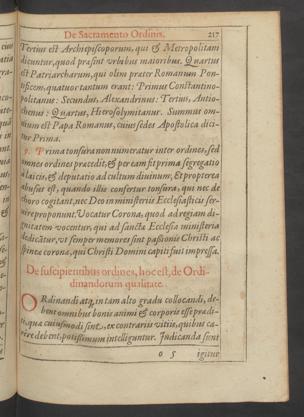 De Sacramento Ordinis. 217
Tertius est Archiepiscoporum, qui & Metropolitani
dicuntur, quod præsint vrbibus maioribus. Quartus
est Patriarcharum, qui olim præter Romanum Pon-
tificem, quatuor tantum erant: Primus Constantino-
politanus: Secundus, Alexandrinus: Tertius, Antio-
chenus: Quartus, Hierosolymitanus. Summus om-
nium est Papa Romanus, cuius sedes Apostolica dici-
tur Prima.
9. Prima tonsura non numeratur inter ordines, sed
omnes ordines præcedit, & per eam fit prima segregatio
à laicis, & deputatio ad cultum diuinum, Et propterea
abusus est, quando illis confertur tonsura, qui nec de
choro cogitant, nec Deo in ministeriis Ecclesiasticis ser-
uire proponunt. Vocatur Corona, quod ad regiam di-
gnitatem vocentur, qui ad sancta Ecclesiæ ministeria
dedicātur, vt semper memores sint passionis Christi ac
spineæ coronæ, qui Christi Domini capiti fuit impressa.
De suscipientibus ordines, hoc est, de Ordi-
dinandorum qualitate.
ORdinandi atq, in tam alto gradu collocandi, de-
bent omnibus bonis animi & corporis esse prædi-
ti, quæ cuiusmodi sint, ex contrariis vitiis, quibus ca-
rêre debent, potissimum intelliguntur. Iudicanda sunt
O 5 igitur